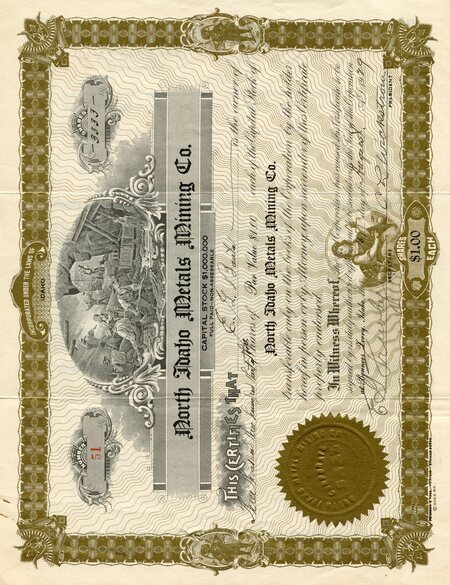 INCORPORATED UNDER THE LAWS OF
IDAHO
NUMBER
51
SHARES
3333
North Idaho Metals Mining Co.
CAPITAL STOCK $1,000,000
FULL PAID - NON-ASSESSABLE
THIS CERTIFIES THAT is the owner of
Shares of Par Value $1.00 each of the Capital Stock of
North Idaho Metals Mining Co.
transferable only on the books of the Corporation by the holder
hereof in person or by Attorney, upon surrender of this Certificate
properly endorsed.
In Witness Whereof, the Corporation has caused this Certificate to be
signed by its duly authorized officers and to be sealed with the Seal of the Corporation
at Bonners Ferry, Idaho, day of August 1929
C. R. Wickstrom
SECRETARY
SHARES
$1.00
EACH